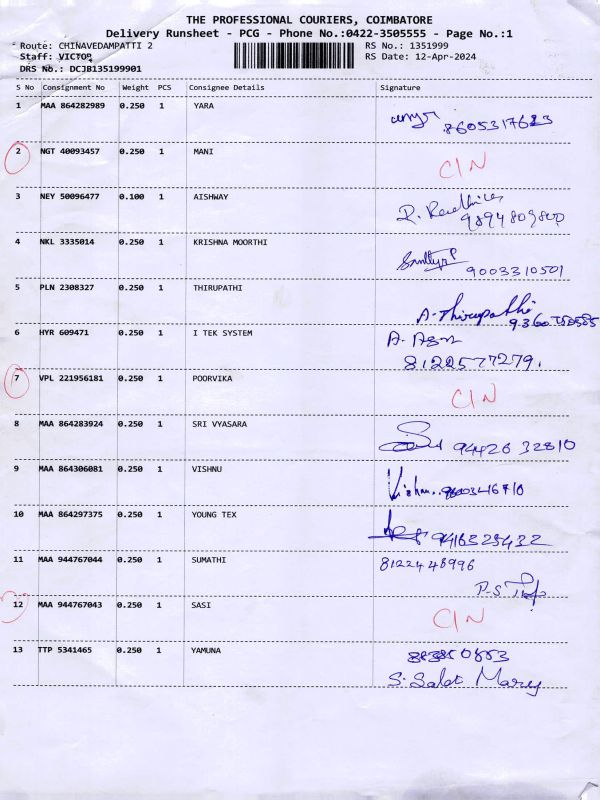 THE PROFESSIONAL COURIERS, COIMBATORE
Delivery Runsheet - PCG - Phone No.:0422-3505555 - Page No.:1
Route: CHINAVEDAMPATTI 2 RS No.: 1351999
Staff: VICTOR RS Date: 12-Apr-2024
DRS No.: DCJB135199901
S No Consignment No Weight PCS Consignee Details Signature
1 MAA 864282989 0.250 1 YARA
8605317623
2 NGT 40093457 0.250 1 MANI
CIN
3 NEY 50096477 0.100 1 AISHWAY
9894809800
4 NKL 3335014 0.250 1 KRISHNA MOORTHI
9003310501
5 PLN 2308327 0.250 1 THIRUPATHI
A. Thirupathi
6 HYR 609471 0.250 1 I TEK SYSTEM
8122577279.
7 VPL 221956181 0.250 1 POORVIKA
CIN
8 MAA 864283924 0.250 1 SRI VYASARA
94426 32810
9 MAA 864306081 0.250 1 VISHNU
Vishnu.
10 MAA 864297375 0.250 1 YOUNG TEX
9416329432
11 MAA 944767044 0.250 1 SUMATHI
8122448996
12 MAA 944767043 0.250 1 SASI
CIN
13 TTP 5341465 0.250 1 YAMUNA